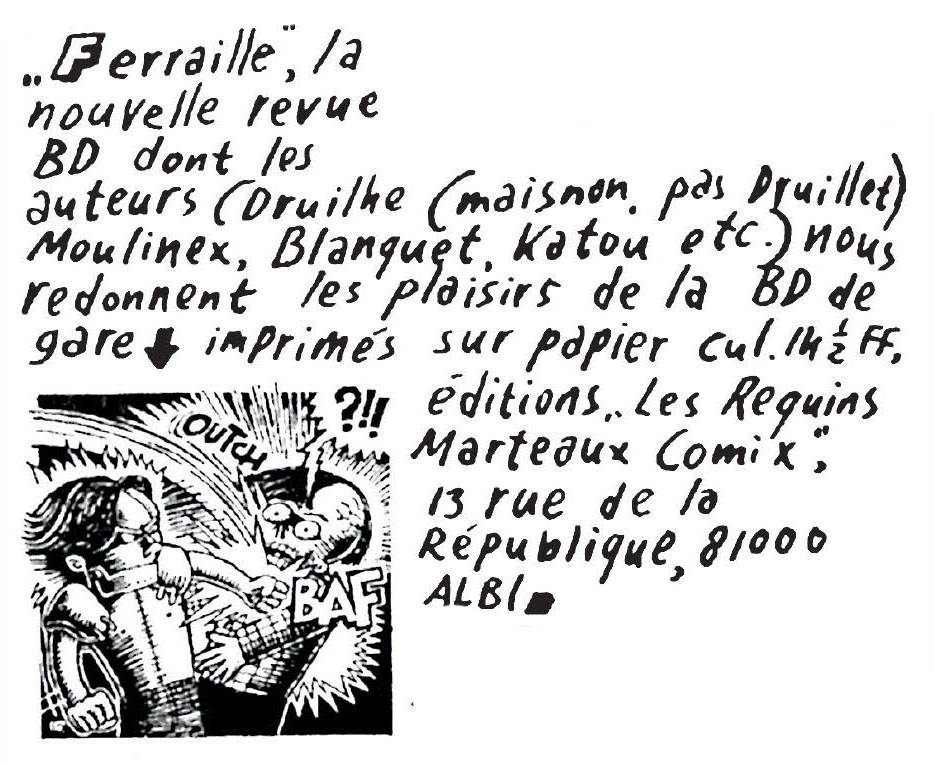 „Ferraille", la
nouvelle revue
BD dont les
auteurs (Druilhe (maisnon, pas Druillet)
Moulinex, Blanquet, Katou etc.) nous
redonnent les plaisirs de la BD de
gare imprimés sur papier cul. 14 ½ FF,
éditions „Les Requins
Marteaux Comix",
13 rue de la
République, 81000
ALBI.
?!!!
OUTCH
BAF